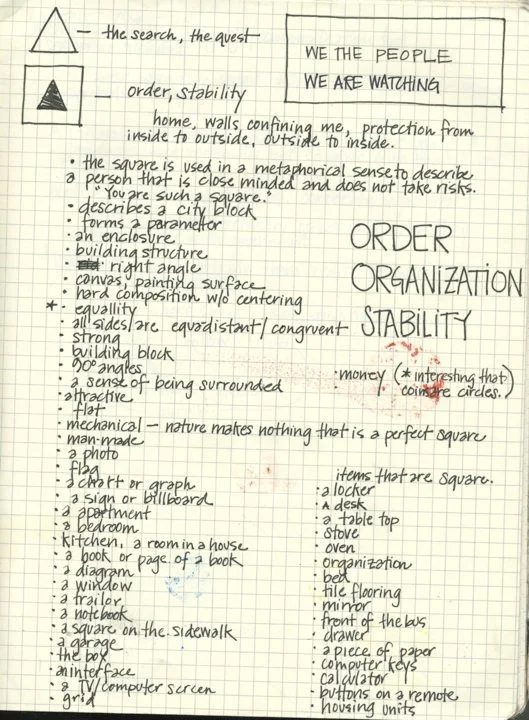 — the search, the quest
WE THE PEOPLE
WE ARE WATCHING
— order, stability
home, walls, confining me, protection from
inside to outside, outside to inside.
• the square is used in a metaphorical sense to describe
a person that is close minded and does not take risks.
"You are such a square."
• describes a city block
• forms a parameter
• an enclosure
• building structure
• right angle
• canvas, painting surface
• hard composition w/o centering
* • equallity
• all sides/are equadistant/congruent
• strong
• building block
• 90° angles
• a sense of being surrounded
• attractive
• flat
• mechanical — nature makes nothing that is a perfect square
• man-made
• a photo
• flag
• a chart or graph
• a sign or billboard
• a apartment
• a bedroom
• kitchen, a room in a house
• a book or page of a book
• a diagram
• a window
• a trailor
• a notebook
• a square on the sidewalk
• a garage
• the box
• an interface
• a TV/computer screen
• grid
ORDER
ORGANIZATION
STABILITY
• money (* interesting that
coins are circles.)
items that are square.
• a locker
• A desk
• a table top
• stove
• oven
• organization
• bed
• tile flooring
• mirror
• front of the bus
• drawer
• a piece of paper
• computer keys
• calculator
• buttons on a remote
• housing units